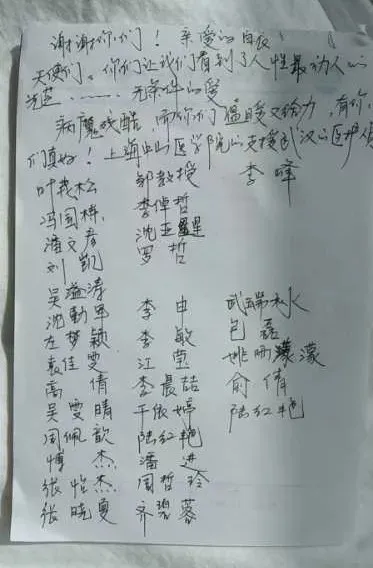 谢谢你们！亲爱的白衣
天使们。你们让我们看到了人性最动人的
光芒……无条件的爱
病魔残酷，而你们温暖又给力，有你
们真好！上海中山医学院的支援武汉的医护
叶茂松 邹教授 李峰
冯国栋 李倬哲
潘文彦 沈亚星
刘凯 罗哲
吴溢涛 李申 武端
沈勤军 李敏 包磊
左梦颖 江莹 姚雨濛
袁佳雯 李晨喆 俞倩
高倩 于依婷 陆红艳
吴雯晴 陆红艳
周佩歆 潘进
傅杰 周哲玲
张怡杰 齐碧蓉
张晓夏